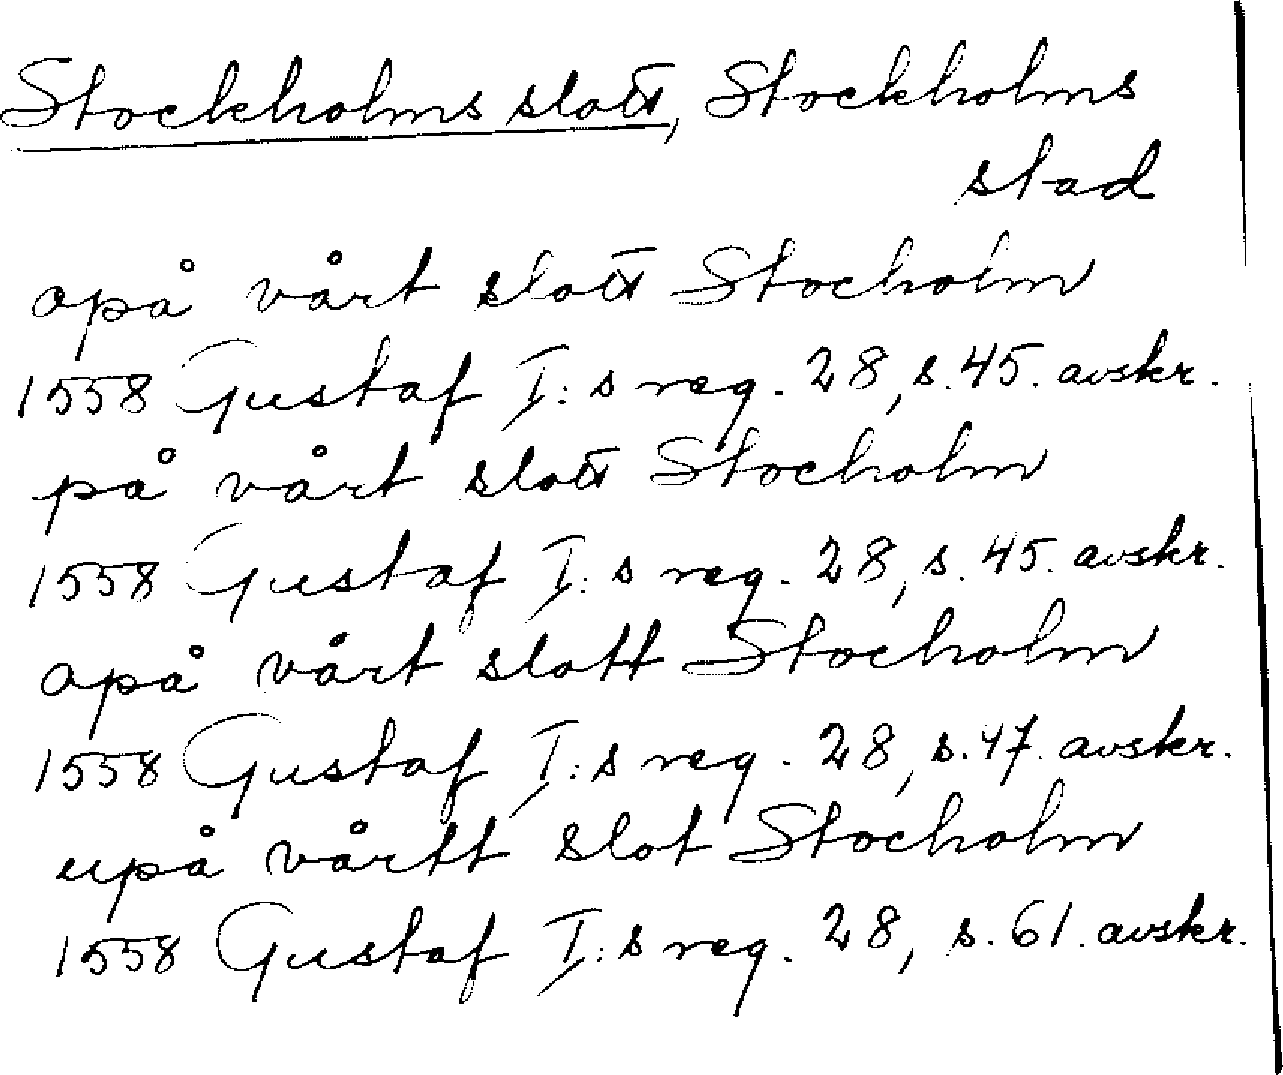 Stockholms slott, Stockholms
stad
opå vårt slott Stocholm
1558 Gustaf I:s reg. 28, s. 45. avskr.
på vårt slott Stocholm
1558 Gustaf I:s reg. 28, s. 45. avskr.
opå vårt slott Stocholm
1558 Gustaf I:s reg. 28, s. 47. avskr.
upå vårtt slot Stocholm
1558 Gustaf I:s reg. 28, s. 61. avskr.